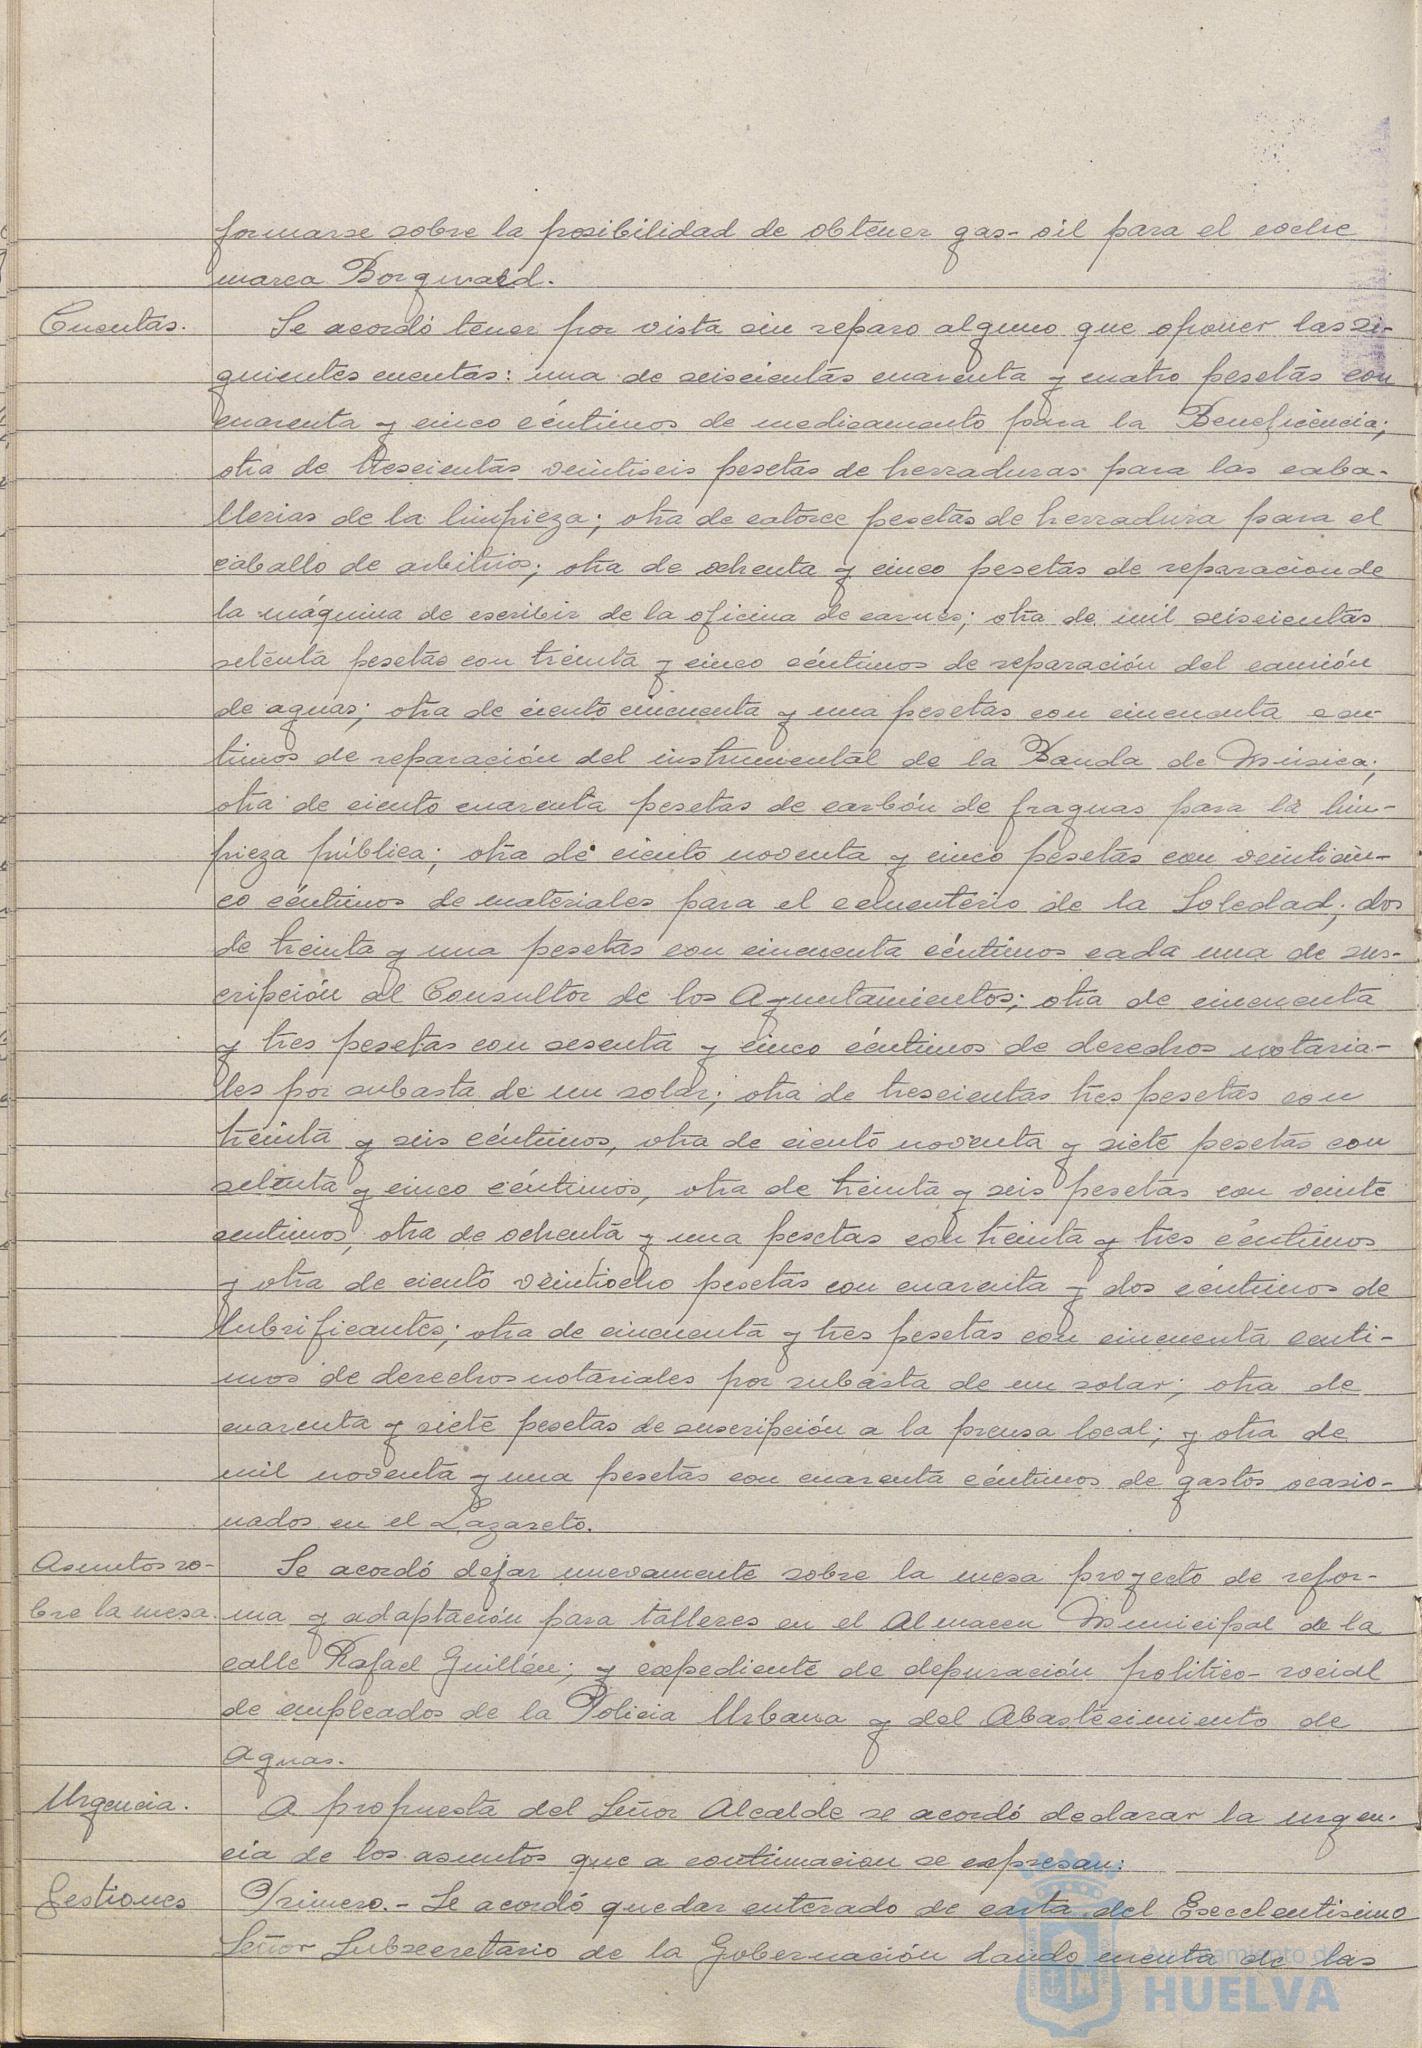 formarse sobre la posibilidad de obtener gas-oil para el coche
marca Borgward.
Cuentas.
Se acordó tener por vista sin reparo alguno que oponer las si-
guientes cuentas: una de seiscientas cuarenta y cuatro pesetas con
cuarenta y cinco céntimos de medicamento para la Beneficencia;
otra de trescientas veintiseis pesetas de herraduras para las caba-
llerias de la limpieza; otra de catorce pesetas de herradura para el
caballo de arbitrios; otra de ochenta y cinco pesetas de reparacion de
la máquina de escribir de la oficina de carnes; otra de mil seiscientas
setenta pesetas con treinta y cinco céntimos de reparación del camión
de aguas; otra de ciento cincuenta y una pesetas con cincuenta cen-
timos de reparación del instrumental de la Banda de Música;
otra de ciento cuarenta pesetas de carbón de fraguas para la lim-
pieza pública; otra de ciento noventa y cinco pesetas con veinticin-
co céntimos de materiales para el cementerio de la Soledad; dos
de treinta y una pesetas con cincuenta céntimos cada una de sus-
cripción al Consultor de los Ayuntamientos; otra de cincuenta
y tres pesetas con sesenta y cinco céntimos de derechos notaria-
les por subasta de un solar; otra de trescientas tres pesetas con
treinta y seis céntimos, otra de ciento noventa y siete pesetas con
setenta y cinco céntimos, otra de treinta y seis pesetas con veinte
centimos, otra de ochenta y una pesetas con treinta y tres céntimos
y otra de ciento veintiocho pesetas con cuarenta y dos céntimos de
lubrificantes; otra de cincuenta y tres pesetas con cincuenta centi-
mos de derechos notariales por subasta de un solar; otra de
cuarenta y siete pesetas de suscripción a la prensa local; y otra de
mil noventa y una pesetas con cuarenta céntimos de gastos ocasio-
nados en el Lazareto.
Asuntos so-
bre la mesa.
Se acordó dejar nuevamente sobre la mesa proyecto de refor-
ma y adaptación para talleres en el Almacen Municipal de la
calle Rafael Guillén; y expediente de depuración politico-social
de empleados de la Policia Urbana y del Abastecimiento de
Aguas.
Urgencia.
A propuesta del Señor Alcalde se acordó declarar la urgen-
cia de los asuntos que a continuacion se expresan:
Gestiones
Primero.- Se acordó quedar enterado de carta del Excelentisimo
Señor Subsecretario de la Gobernación dando cuenta de las
Ayuntamiento de
HUELVA